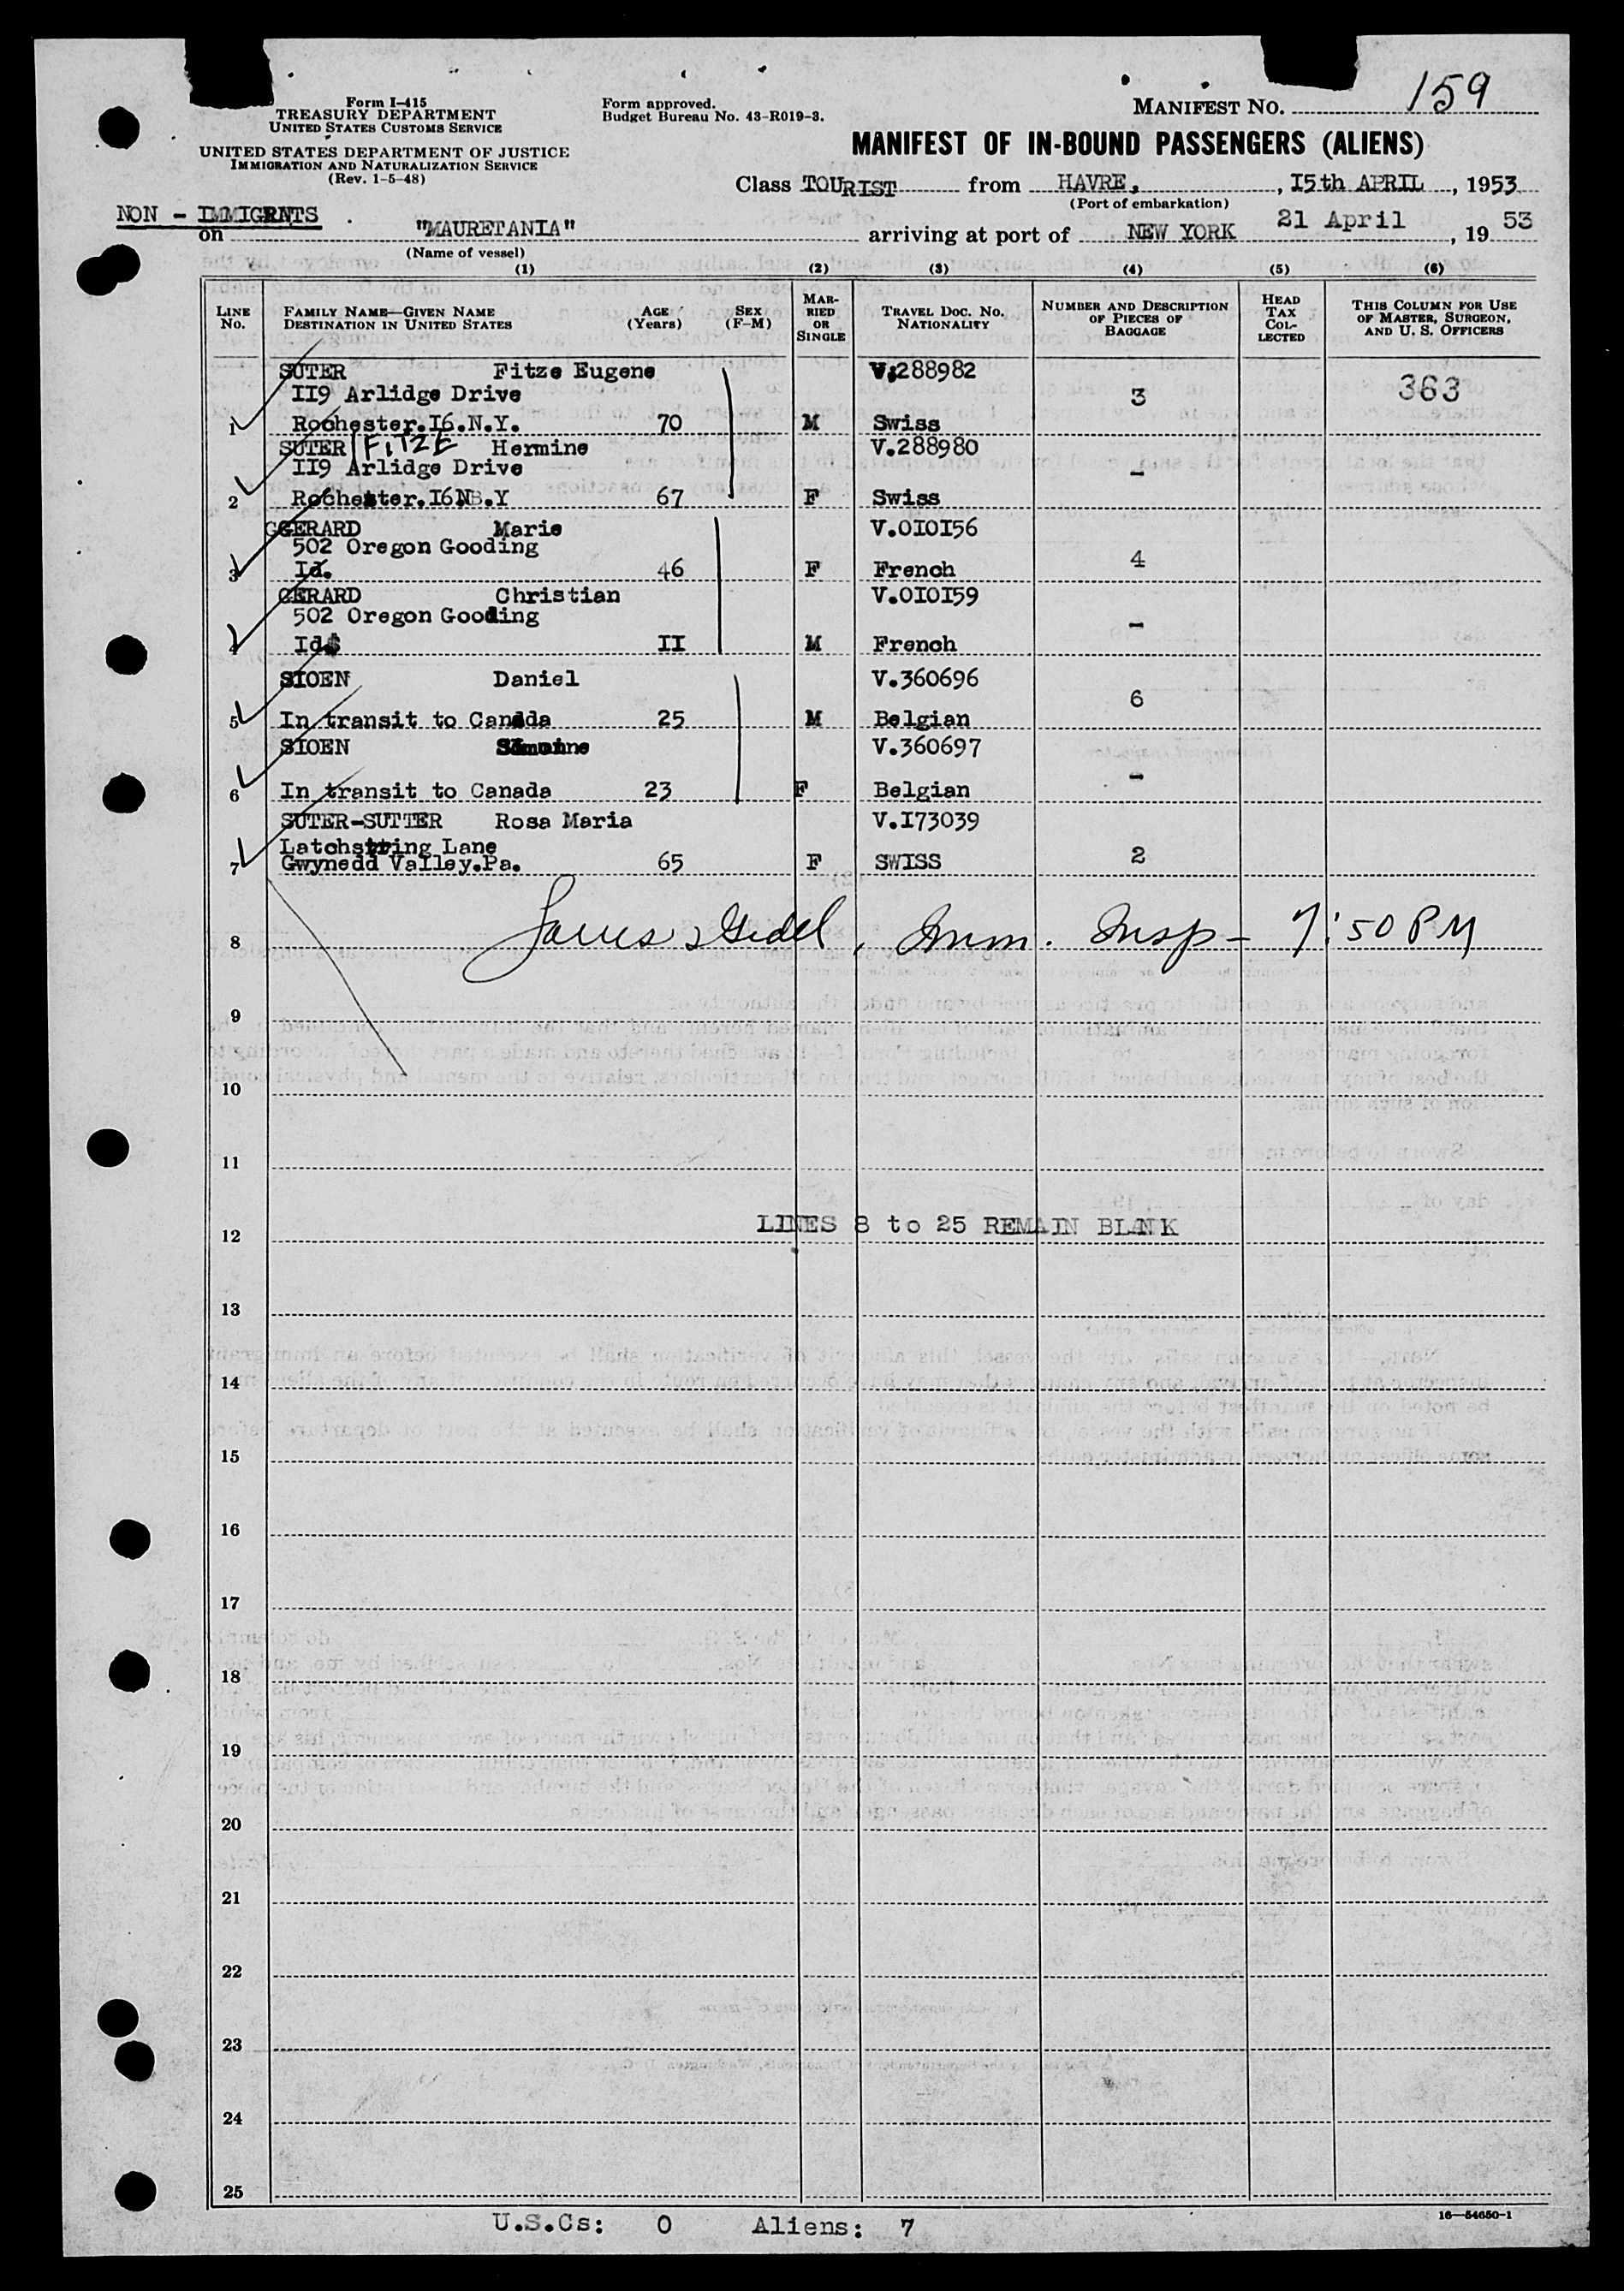 Form I-415
TREASURY DEPARTMENT
UNITED STATES CUSTOMS SERVICE
UNITED STATES DEPARTMENT OF JUSTICE
IMMIGRATION AND NATURALIZATION SERVICE
(Rev. 1-5-48)
Form approved.
Budget Bureau No. 43-R019-3.
MANIFEST NO. 159
MANIFEST OF IN-BOUND PASSENGERS (ALIENS)
Class TOURIST from HAVRE, , I5th APRIL , 1953
(Port of embarkation)
NON - IMMIGRNTS
on "MAURETANIA" arriving at port of NEW YORK 21 April , 19 53
(Name of vessel)
(1) (2) (3) (4) (5) (6)
LINE No. FAMILY NAME—GIVEN NAME DESTINATION IN UNITED STATES AGE (Years) SEX (F-M) MAR-RIED OR SINGLE TRAVEL DOC. NO. NATIONALITY NUMBER AND DESCRIPTION OF PIECES OF BAGGAGE HEAD TAX COL-LECTED THIS COLUMN FOR USE OF MASTER, SURGEON, AND U. S. OFFICERS
SUTER Fitze Eugene V.288982
II9 Arlidge Drive 3 363
1 Rochester.I6.N.Y. 70 M Swiss
SUTER FITZE Hermine V.288980
II9 Arlidge Drive -
2 Rochester.I6N.Y 67 F Swiss
GGERARD Marie V.0I0I56
502 Oregon Gooding 4
3 Id. 46 F French
GERARD Christian V.0I0I59
502 Oregon Gooding -
4 Id II M French
SIOEN Daniel V.360696
6
5 In transit to Canada 25 M Belgian
SIOEN V.360697
-
6 In transit to Canada 23 F Belgian
SUTER-SUTTER Rosa Maria V.I73039
Latchstring Lane 2
7 Gwynedd Valley.Pa. 65 F SWISS
8 Imm. Insp - 7:50 PM
9
10
11
LINES 8 to 25 REMAIN BLANK
12
13
14
15
16
17
18
19
20
21
22
23
24
25
16—54650-1
U.S.Cs: 0 Aliens: 7